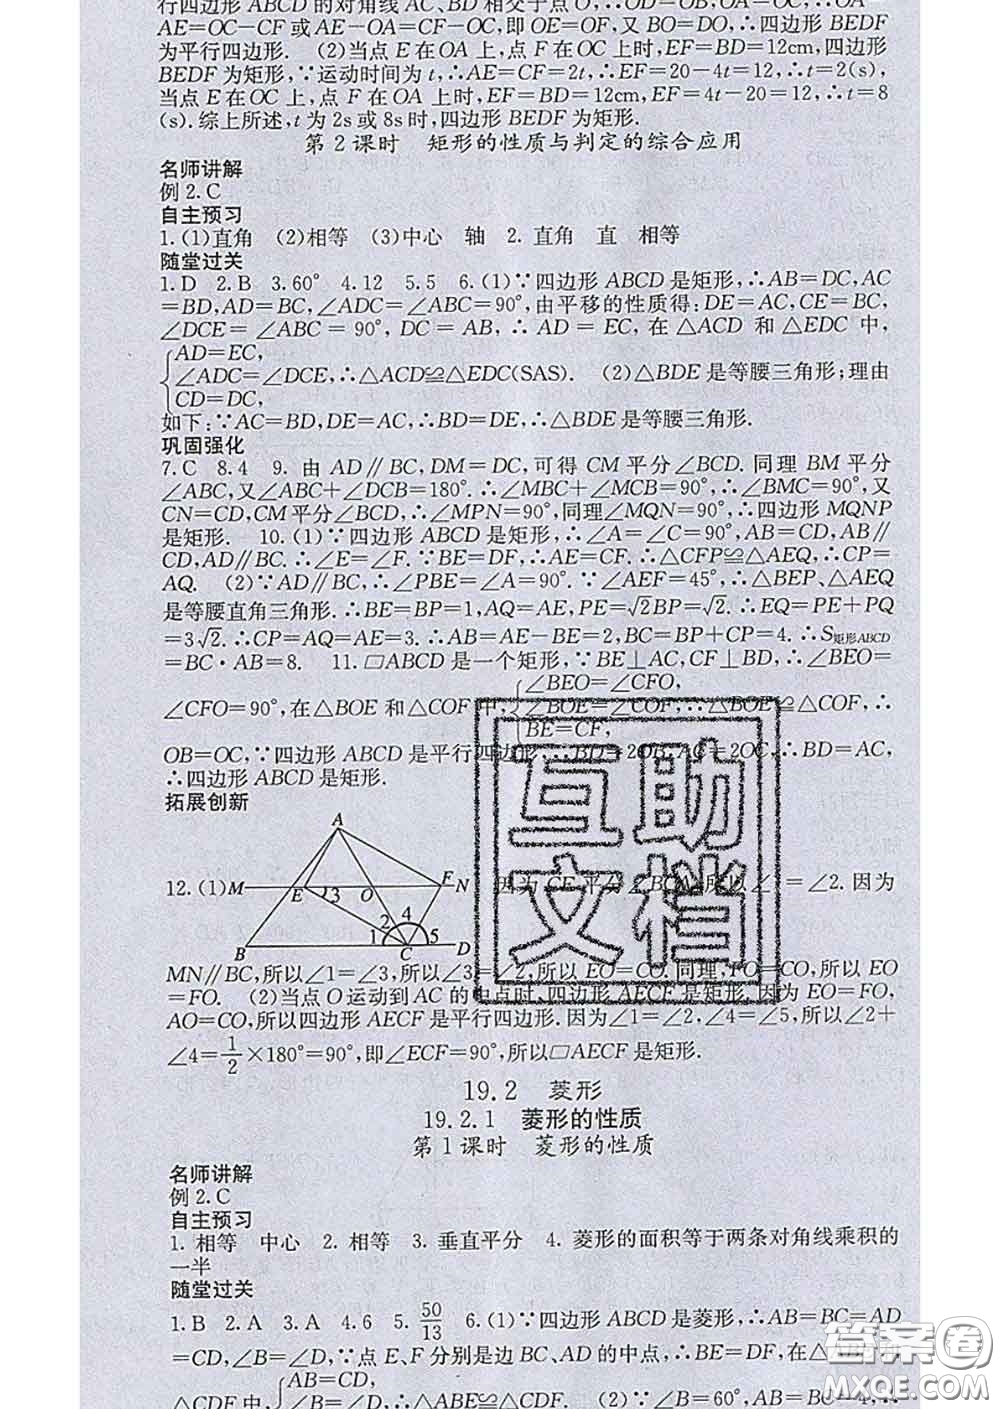 行四边形 ABCD 的对角线 AC、BD 相交于点 O,∴OD=OB,OA=OC,∴OA-
AE=OC-CF 或 AE-OA=CF-OC,即 OE=OF,又 BO=DO,∴四边形 BEDF
为平行四边形. (2)当点 E 在 OA 上,点 F 在 OC 上时,EF=BD=12cm,四边形
BEDF 为矩形,∵运动时间为 t,∴AE=CF=2t,∴EF=20-4t=12,∴t=2(s),
当点 E 在 OC 上,点 F 在 OA 上时,EF=BD=12cm,EF=4t-20=12,∴t=8
(s).综上所述,t 为 2s 或 8s 时,四边形 BEDF 为矩形.
第 2 课时 矩形的性质与判定的综合应用
名师讲解
例 2.C
自主预习
1.(1)直角 (2)相等 (3)中心 轴 2. 直角 直 相等
随堂过关
1.D 2.B 3.60° 4.12 5.5 6.(1)∵四边形 ABCD 是矩形,∴AB=DC,AC
=BD,AD=BC,∠ADC=∠ABC=90°,由平移的性质得:DE=AC,CE=BC,
∠DCE=∠ABC=90°,DC=AB,∴AD=EC,在△ACD 和△EDC 中,
AD=EC,
∠ADC=∠DCE,∴△ACD≌△EDC(SAS). (2)△BDE 是等腰三角形;理由
CD=DC,
如下:∵AC=BD,DE=AC,∴BD=DE,∴△BDE 是等腰三角形.
巩固强化
7.C 8.4 9. 由 AD∥BC,DM=DC,可得 CM 平分∠BCD. 同理 BM 平分
∠ABC,又∠ABC+∠DCB=180°.∴∠MBC+∠MCB=90°,∴∠BMC=90°,又
CN=CD,CM 平分∠BCD,∴∠MPN=90°,同理∠MQN=90°,∴四边形 MQNP
是矩形. 10.(1)∵四边形 ABCD 是矩形,∴∠A=∠C=90°,AB=CD,AB∥
CD,AD∥BC.∴∠E=∠F.∵BE=DF,∴AE=CF.∴△CFP≌△AEQ,∴CP=
AQ. (2)∵AD∥BC,∴∠PBE=∠A=90°.∵∠AEF=45°,∴△BEP、△AEQ
是等腰直角三角形.∴BE=BP=1,AQ=AE,PE=√2BP=√2.∴EQ=PE+PQ
=3√2.∴CP=AQ=AE=3.∴AB=AE-BE=2,BC=BP+CP=4.∴S矩形ABCD
=BC·AB=8. 11.▱ABCD 是一个矩形,∵BE⊥AC,CF⊥BD,∴∠BEO=
∠BEO=∠CFO,
∠CFO=90°,在△BOE 和△COF 中,∠BOE=∠COF,∴△BOE≌△COF,∴
BE=CF,
OB=OC,∵四边形 ABCD 是平行四边形,∴BD=2OB,AC=2OC,∴BD=AC,
∴四边形 ABCD 是矩形.
拓展创新
A
12.(1)M E 3 O F N 因为 CE 平分∠BCA,所以∠1=∠2.因为
2 4
B 1 C 5 D
MN∥BC,所以∠1=∠3,所以∠3=∠2,所以 EO=CO.同理,FO=CO,所以 EO
=FO. (2)当点 O 运动到 AC 的中点时,四边形 AECF 是矩形.因为 EO=FO,
AO=CO,所以四边形 AECF 是平行四边形.因为∠1=∠2,∠4=∠5,所以∠2+
∠4=1/2×180°=90°,即∠ECF=90°,所以▱AECF 是矩形.
19.2 菱形
19.2.1 菱形的性质
第 1 课时 菱形的性质
名师讲解
例 2.C
自主预习
1. 相等 中心 2. 相等 3. 垂直平分 4. 菱形的面积等于两条对角线乘积的
一半
随堂过关
1.B 2.A 3.A 4.6 5.50/13 6.(1)∵四边形 ABCD 是菱形,∴AB=BC=AD
=CD,∠B=∠D,∵点 E、F 分别是边 BC、AD 的中点,∴BE=DF,在△ABE
AB=CD,
△CDF 中,∠B=∠D,∴△ABE≌△CDF. (2)∵∠B=60°,AB=BC=4,∴
互助
文档
答案圈
MXQE.COM